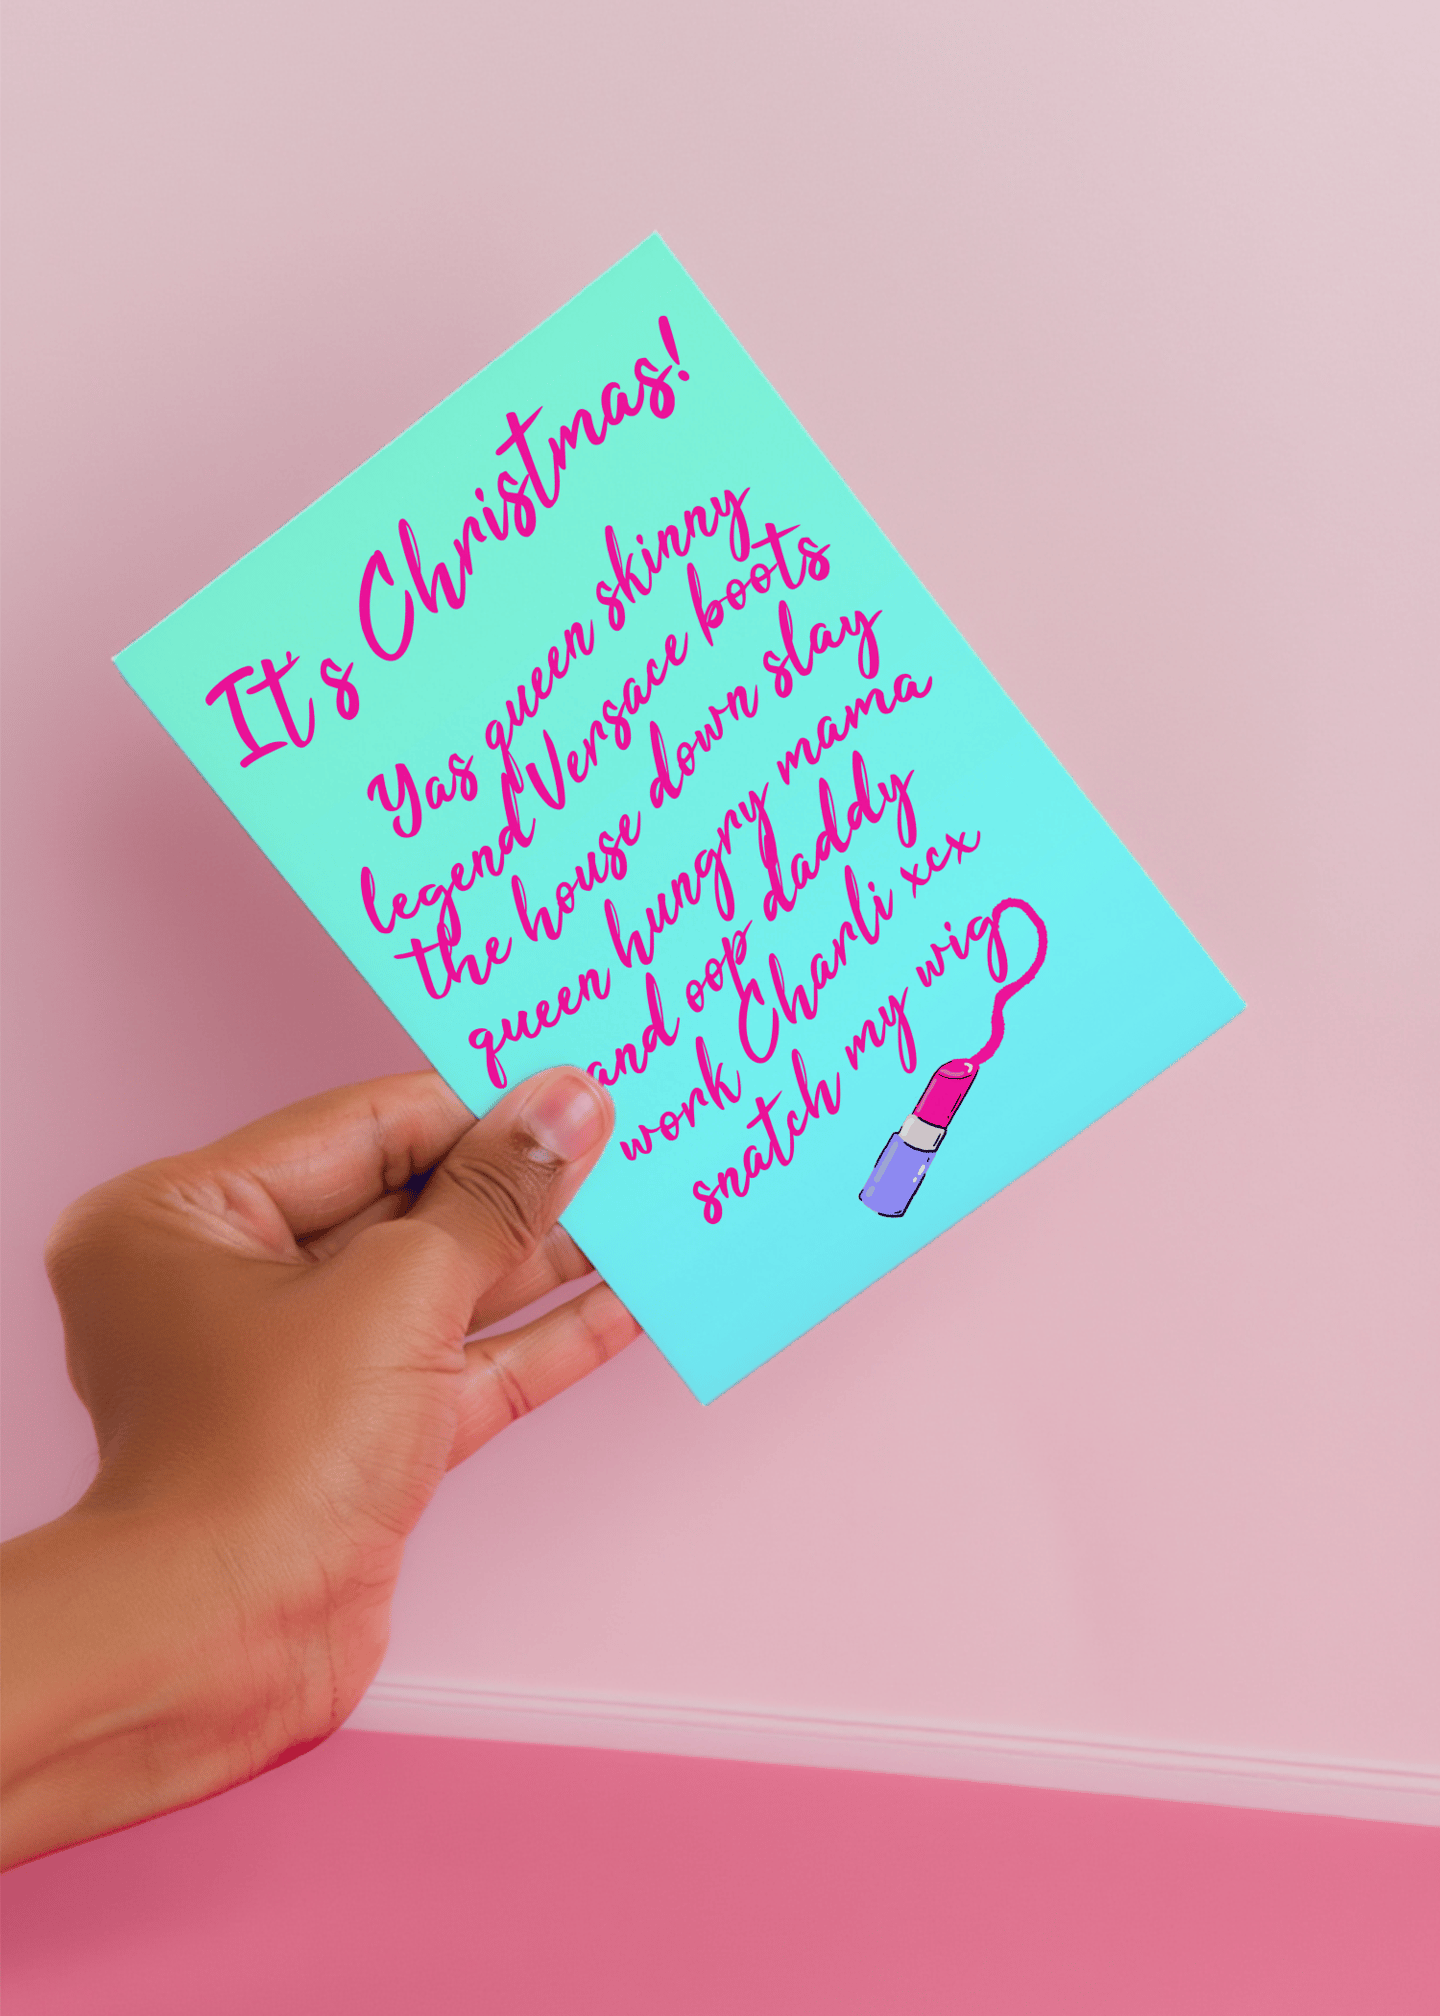 It's Christmas!
Yas queen skinny
legend Versace boots
the house down slay
queen hungry mama
and oop daddy
work Charli xcx
snatch my wig